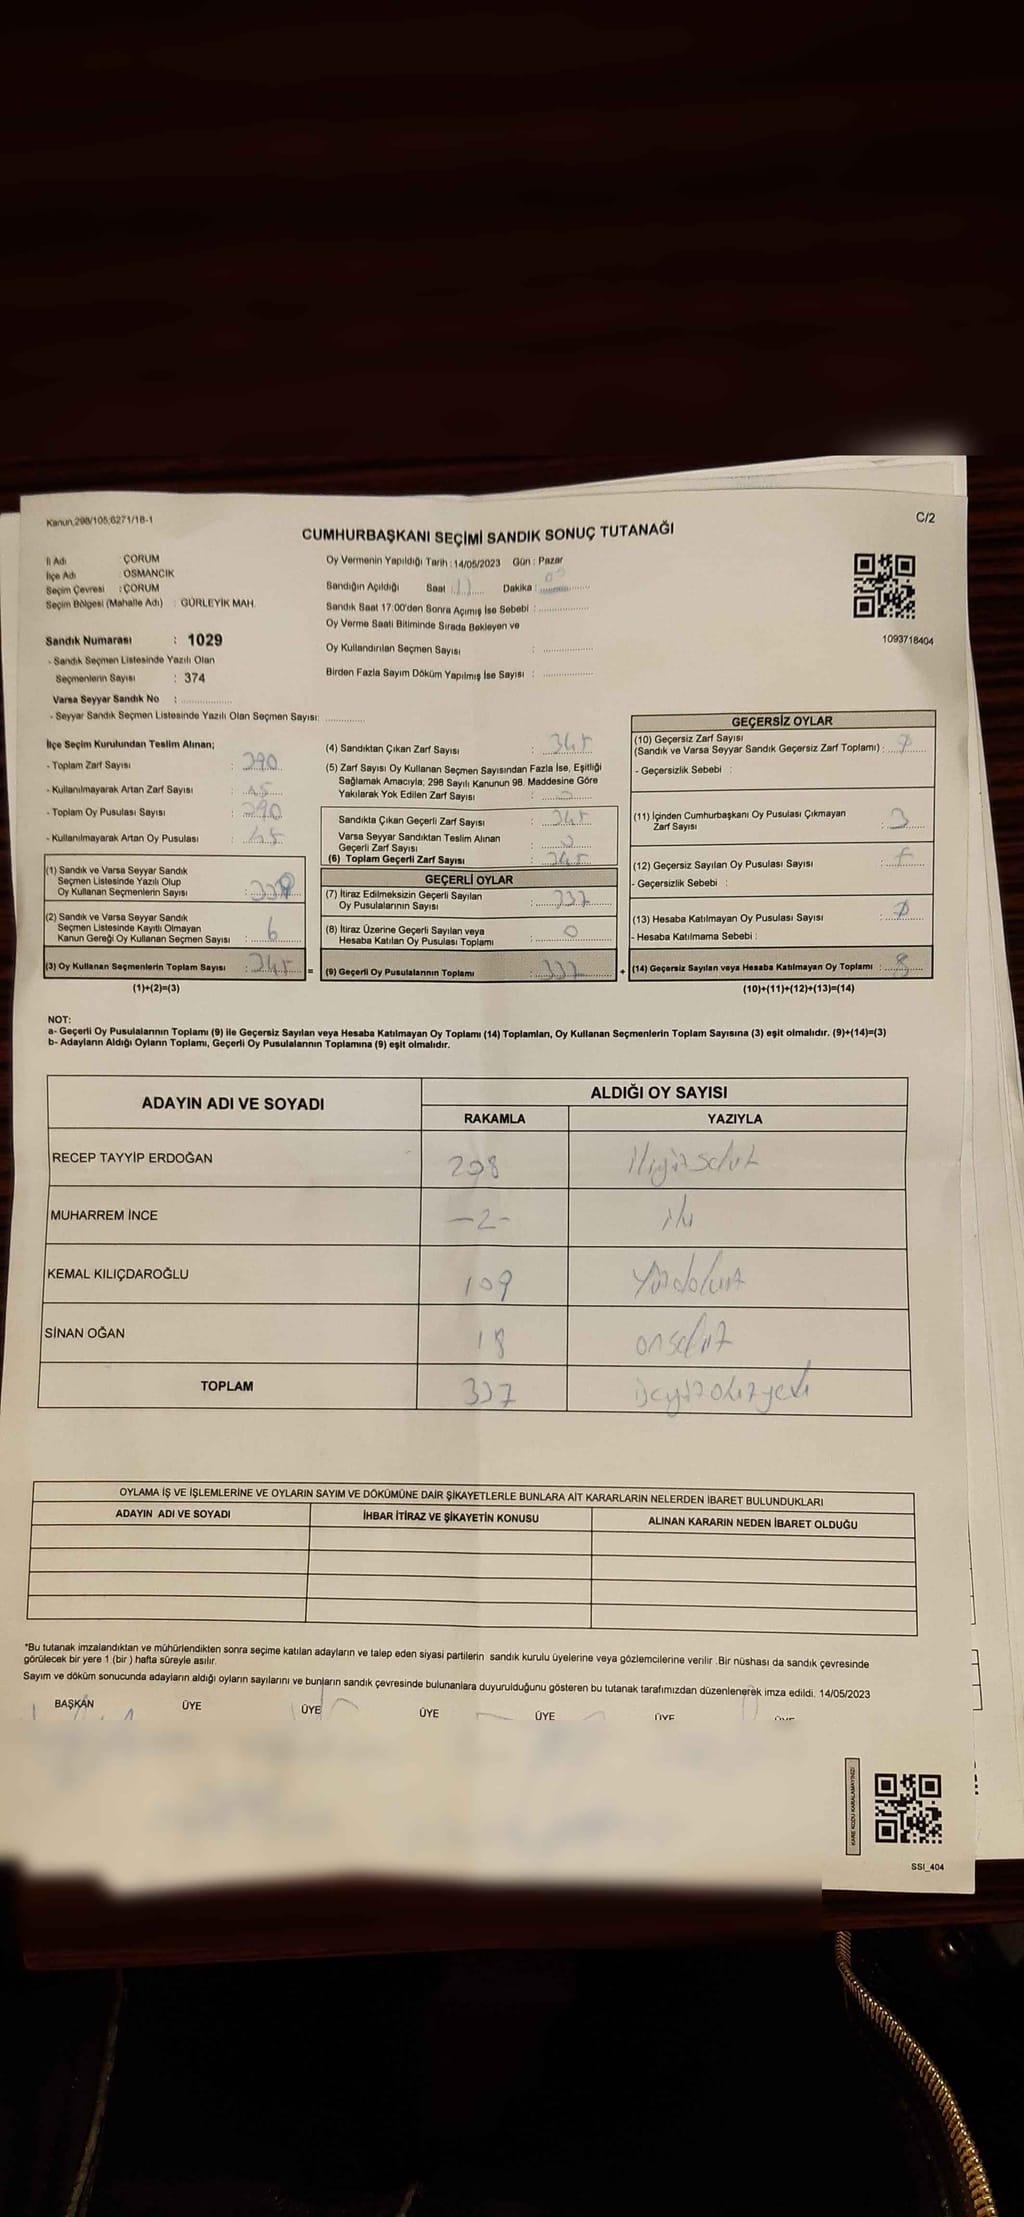 Kanun,298/105,6271/18-1
C/2
CUMHURBAŞKANI SEÇİMİ SANDIK SONUÇ TUTANAĞI
İl Adı : ÇORUM
İlçe Adı : OSMANCIK
Seçim Çevresi : ÇORUM
Seçim Bölgesi (Mahalle Adı) : GÜRLEYİK MAH.
Sandık Numarası : 1029
- Sandık Seçmen Listesinde Yazılı Olan
Seçmenlerin Sayısı : 374
Varsa Seyyar Sandık No :
- Seyyar Sandık Seçmen Listesinde Yazılı Olan Seçmen Sayısı:
Oy Vermenin Yapıldığı Tarih : 14/05/2023 Gün : Pazar
Sandığın Açıldığı Saat Dakika :
Sandık Saat 17:00'den Sonra Açımış İse Sebebi :
Oy Verme Saati Bitiminde Sırada Bekleyen ve
Oy Kullandırılan Seçmen Sayısı :
Birden Fazla Sayım Döküm Yapılmış İse Sayısı :
1093718404
İlçe Seçim Kurulundan Teslim Alınan;
- Toplam Zarf Sayısı : 390
- Kullanılmayarak Artan Zarf Sayısı : 45
- Toplam Oy Pusulası Sayısı : 390
- Kullanılmayarak Artan Oy Pusulası : 45
(1) Sandık ve Varsa Seyyar Sandık
Seçmen Listesinde Yazılı Olup
Oy Kullanan Seçmenlerin Sayısı : 339
(2) Sandık ve Varsa Seyyar Sandık
Seçmen Listesinde Kayıtlı Olmayan
Kanun Gereği Oy Kullanan Seçmen Sayısı : 6
(3) Oy Kullanan Seçmenlerin Toplam Sayısı : 345
(1)+(2)=(3)
(4) Sandıktan Çıkan Zarf Sayısı : 345
(5) Zarf Sayısı Oy Kullanan Seçmen Sayısından Fazla İse, Eşitliği
Sağlamak Amacıyla; 298 Sayılı Kanunun 98. Maddesine Göre
Yakılarak Yok Edilen Zarf Sayısı : 0
Sandıkta Çıkan Geçerli Zarf Sayısı : 345
Varsa Seyyar Sandıktan Teslim Alınan
Geçerli Zarf Sayısı : 0
(6) Toplam Geçerli Zarf Sayısı : 345
GEÇERLİ OYLAR
(7) İtiraz Edilmeksizin Geçerli Sayılan
Oy Pusulalarının Sayısı : 337
(8) İtiraz Üzerine Geçerli Sayılan veya
Hesaba Katılan Oy Pusulası Toplamı : 0
= (9) Geçerli Oy Pusulalarının Toplamı : 337 +
GEÇERSİZ OYLAR
(10) Geçersiz Zarf Sayısı
(Sandık ve Varsa Seyyar Sandık Geçersiz Zarf Toplamı) :
- Geçersizlik Sebebi :
(11) İçinden Cumhurbaşkanı Oy Pusulası Çıkmayan
Zarf Sayısı : 3
(12) Geçersiz Sayılan Oy Pusulası Sayısı : 5
- Geçersizlik Sebebi :
(13) Hesaba Katılmayan Oy Pusulası Sayısı : Ø
- Hesaba Katılmama Sebebi :
(14) Geçersiz Sayılan veya Hesaba Katılmayan Oy Toplamı : 8
(10)+(11)+(12)+(13)=(14)
NOT:
a- Geçerli Oy Pusulalarının Toplamı (9) ile Geçersiz Sayılan veya Hesaba Katılmayan Oy Toplamı (14) Toplamları, Oy Kullanan Seçmenlerin Toplam Sayısına (3) eşit olmalıdır. (9)+(14)=(3)
b- Adayların Aldığı Oyların Toplamı, Geçerli Oy Pusulalarının Toplamına (9) eşit olmalıdır.
ADAYIN ADI VE SOYADI
ALDIĞI OY SAYISI
RAKAMLA YAZIYLA
RECEP TAYYİP ERDOĞAN 208 ikiyüzsekiz
MUHARREM İNCE -2- iki
KEMAL KILIÇDAROĞLU 109 Yüzdokuz
SİNAN OĞAN 18 onsekiz
TOPLAM 337 üçyüzotuzyedi
OYLAMA İŞ VE İŞLEMLERİNE VE OYLARIN SAYIM VE DÖKÜMÜNE DAİR ŞİKAYETLERLE BUNLARA AİT KARARLARIN NELERDEN İBARET BULUNDUKLARI
ADAYIN ADI VE SOYADI İHBAR İTİRAZ VE ŞİKAYETİN KONUSU ALINAN KARARIN NEDEN İBARET OLDUĞU
*Bu tutanak imzalandıktan ve mühürlendikten sonra seçime katılan adayların ve talep eden siyasi partilerin sandık kurulu üyelerine veya gözlemcilerine verilir .Bir nüshası da sandık çevresinde
görülecek bir yere 1 (bir ) hafta süreyle asılır.
Sayım ve döküm sonucunda adayların aldığı oyların sayılarını ve bunların sandık çevresinde bulunanlara duyurulduğunu gösteren bu tutanak tarafımızdan düzenlenerek imza edildi. 14/05/2023
BAŞKAN ÜYE ÜYE ÜYE ÜYE ÜYE ÜYE
KARE KODU KARALAMAYINIZ!
SSI_404